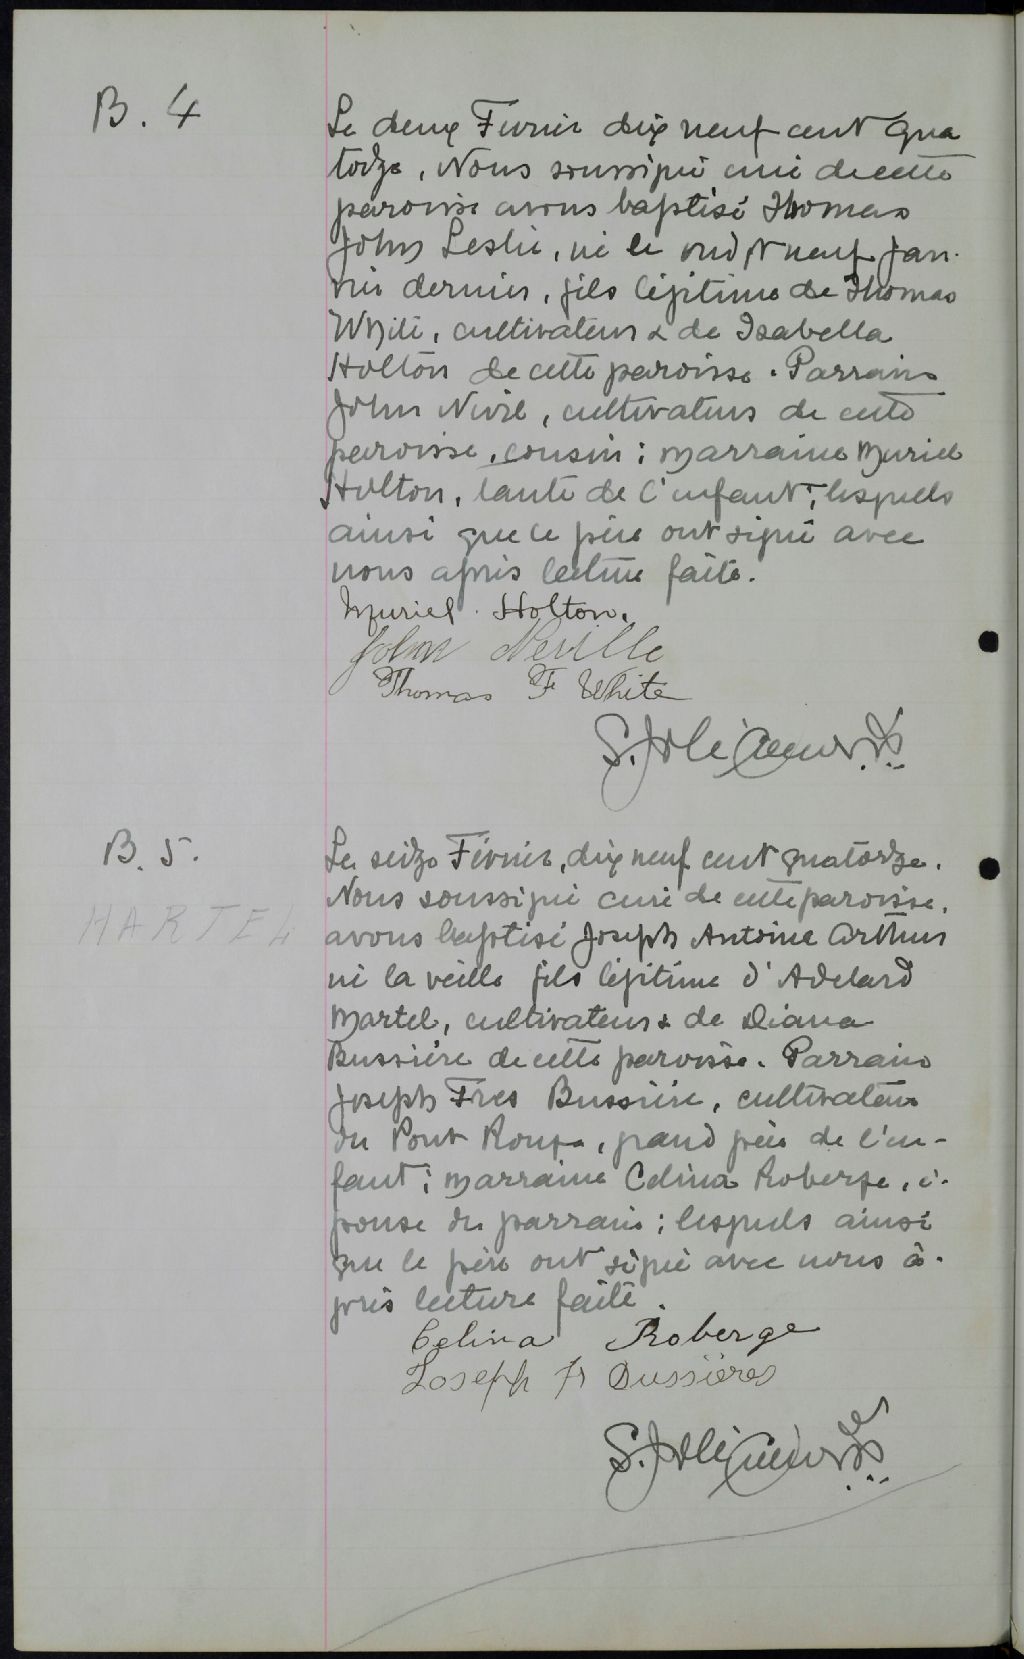 B. 4
Le deux Fevrier dix neuf cent qua
torze, Nous soussigné curé de cette
paroisse avons baptisé Thomas
John Leslie, né le vingt neuf Jan-
vier dernier, fils légitime de Thomas
White, cultivateur & de Isabella
Holton de cette paroisse. Parrain
John Nevil, cultivateur de cette
paroisse, cousin; marraine Muriel
Holton, tante de l'enfant; lesquels
ainsi que le père ont signé avec
nous après lecture faite.
Muriel Holton.
John Neville
Thomas F White
S. Joli
B. 5.
Le seize Février, dix neuf cent quatorze.
Nous soussigné curé de cette paroisse,
HARTEL
avons baptisé Joseph Antoine Arthur
né la veille fils légitime d'Adelard
Martel, cultivateur & de Diana
Bussière de cette paroisse. Parrain
Joseph Frs Bussière, cultivateur
du Pont Rouge, grand père de l'en-
fant; marraine Celina Roberge, é-
pouse du parrain; lesquels ainsi
que le père ont signé avec nous a-
près lecture faite.
Celina Roberge
Joseph Fr Bussieres
S. Joli